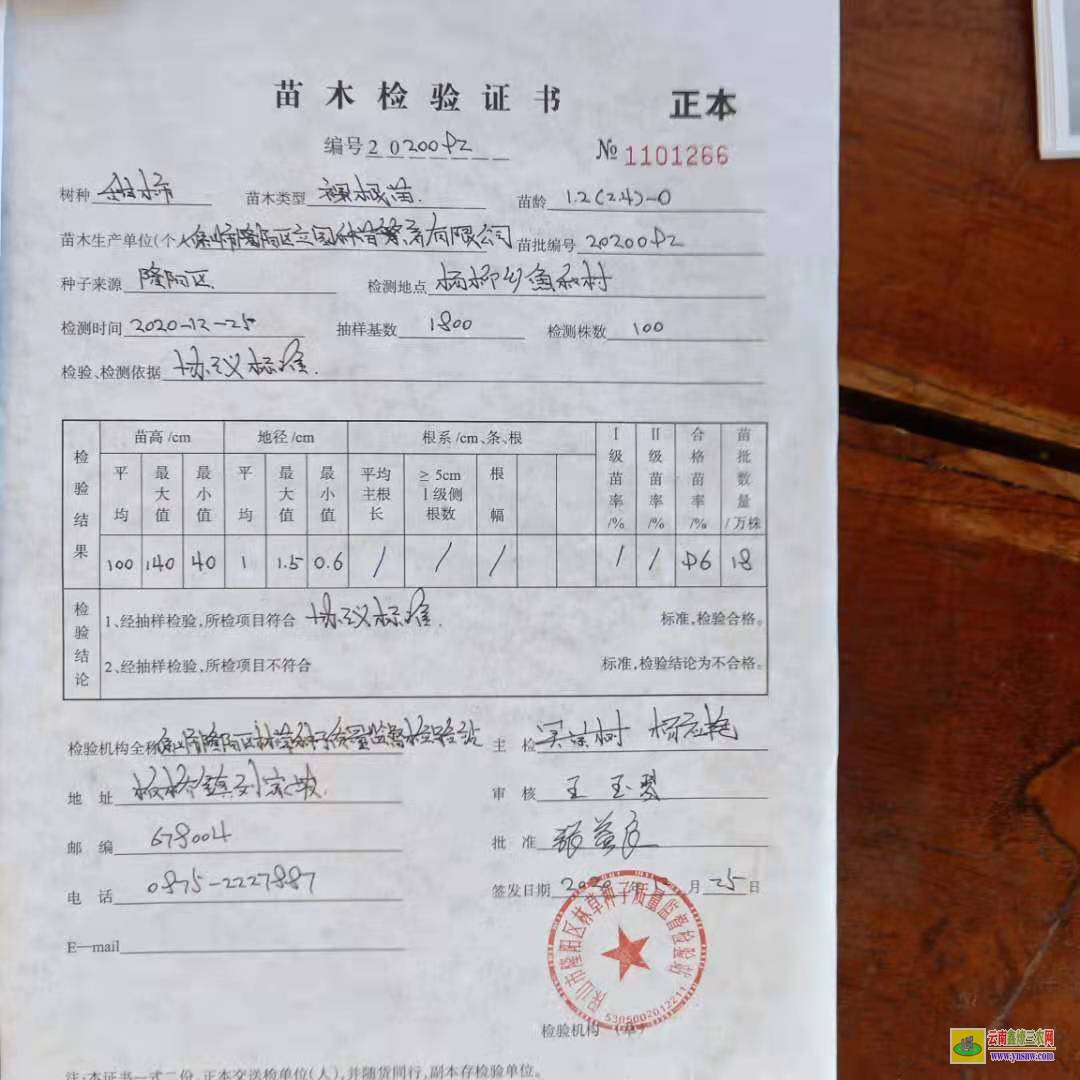 苗木检验证书 正本
编号 20200 № 1101266
树种 苗木类型 裸根苗. 苗龄 1.2(2.4)-0
苗木生产单位(个人 隆阳区 有限公司 苗批编号 20200
种子来源 隆阳区. 检测地点 杨柳乡鱼和村
检测时间 2020-12-25 抽样基数 1800 检测株数 100
检验、检测依据 协议标准.
检验结果 苗高/cm 地径/cm 根系/cm、条、根 Ⅰ级苗率/% Ⅱ级苗率/% 合格苗率/% 苗批数量/万株
平均 最大值 最小值 平均 最大值 最小值 平均主根长 ≥5cm Ⅰ级侧根数 根幅
100 140 40 1 1.5 0.6 / / / / / 96 18
检验结论 1、经抽样检验,所检项目符合 协议标准. 标准,检验合格。
2、经抽样检验,所检项目不符合 标准,检验结论为不合格。
检验机构全称 保山市隆阳区林草种子质量监督检验站 主检
地址 板桥镇 审核 王玉琴
邮编 678004 批准 张益
电话 0875-2227887 签发日期 2020年 月25日
E—mail
保山市隆阳区林草种子质量监督检验站
5305002012211
检验机构 (章)
注:本证书一式二份,正本交送检单位(人),并随货同行,副本存检验单位。
云南鑫嫁三农网
www.ynsnw.com